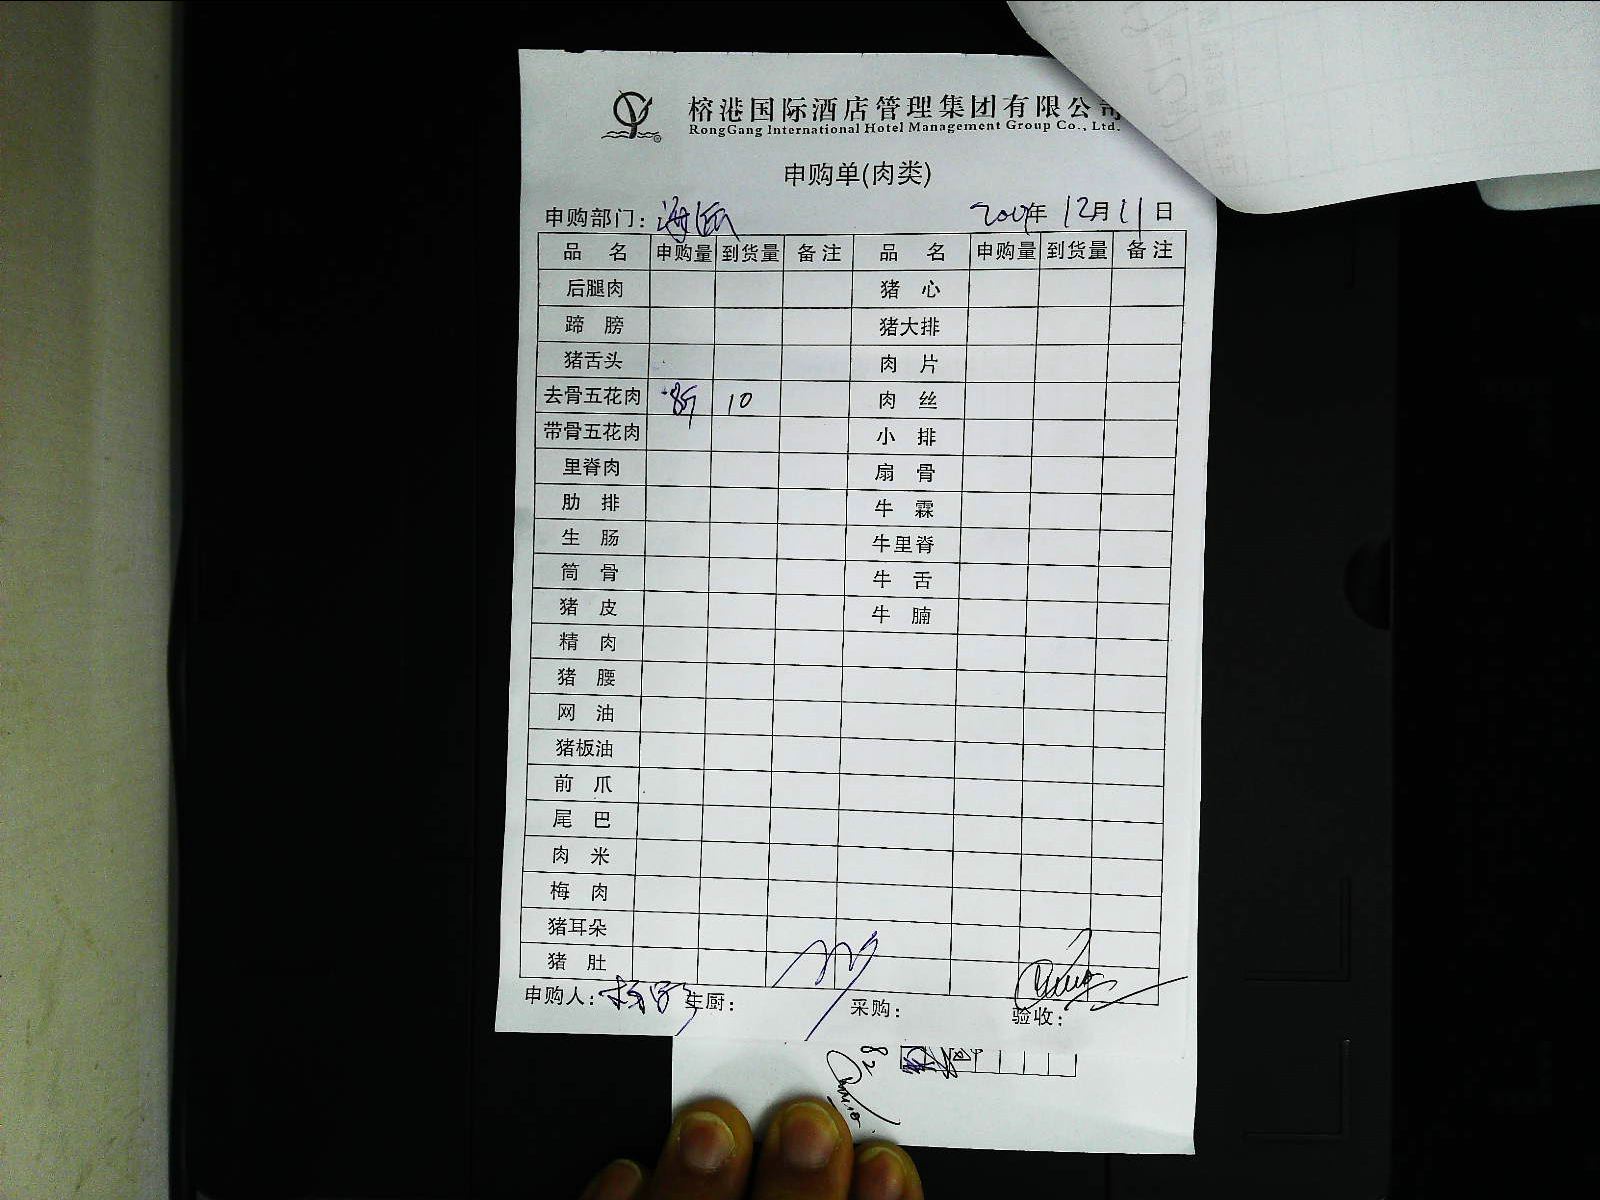 榕港国际酒店管理集团有限公司
RongGang International Hotel Management Group Co., Ltd.
申购单(肉类)
申购部门: 年 12月11日
品 名 申购量 到货量 备注 品 名 申购量 到货量 备注
后腿肉 猪 心
蹄 膀 猪大排
猪舌头 肉 片
去骨五花肉 10 肉 丝
带骨五花肉 小 排
里脊肉 扇 骨
肋 排 牛 霖
生 肠 牛里脊
筒 骨 牛 舌
猪 皮 牛 腩
精 肉
猪 腰
网 油
猪板油
前 爪
尾 巴
肉 米
梅 肉
猪耳朵
猪 肚
申购人: 主厨: 采购: 验收:
82